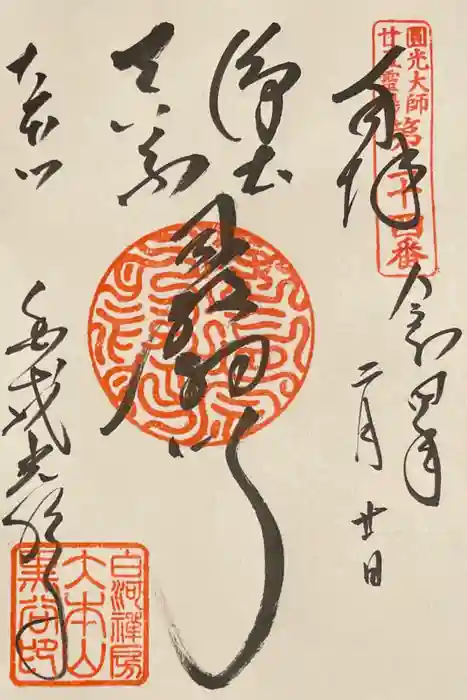 圓光大師
廿五靈場
第二十四番
奉拝
令和四年
二月廿日
浄土
真宗
最初門
大本山
金戒光明寺
白河禪房
大本山
黒谷印